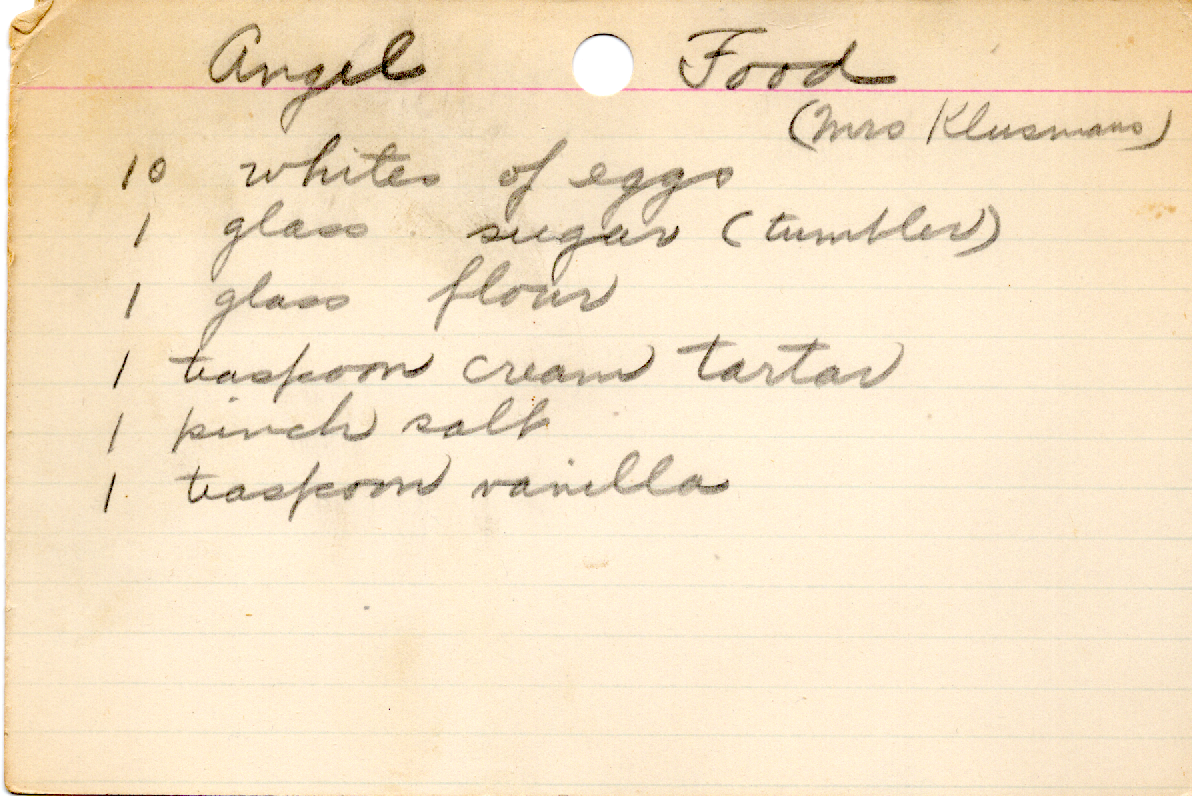 Angel Food
(Mrs Klusmans)
10 whites of eggs
1 glass sugar (tumbler)
1 glass flour
1 teaspoon cream tartar
1 pinch salt
1 teaspoon vanilla